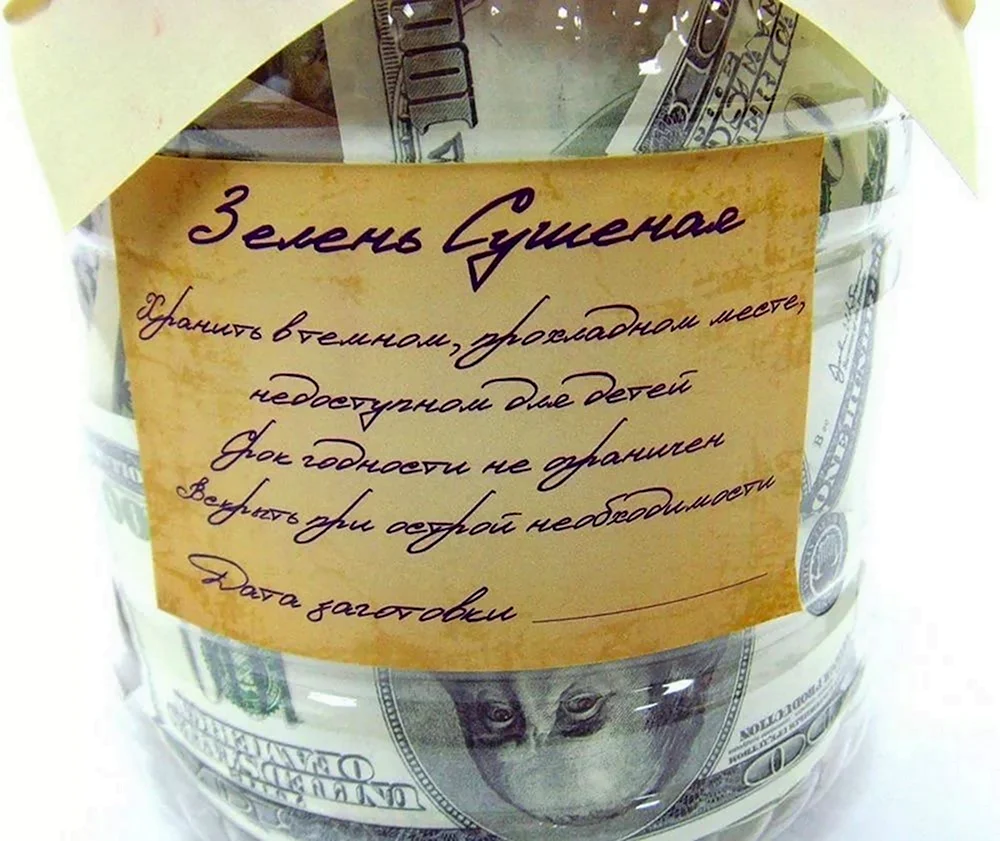 Зелень Сушеная
Хранить в темном, прохладном месте,
недоступном для детей
Срок годности не ограничен
Вскрыть при острой необходимости
Дата заготовки